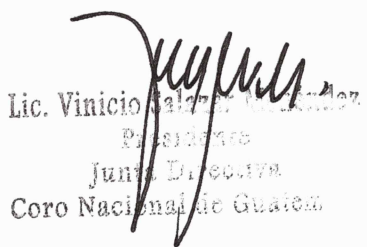 Lic. Vinicio Salazar
Presidente
Junta Directiva
Coro Nacional de Guatem